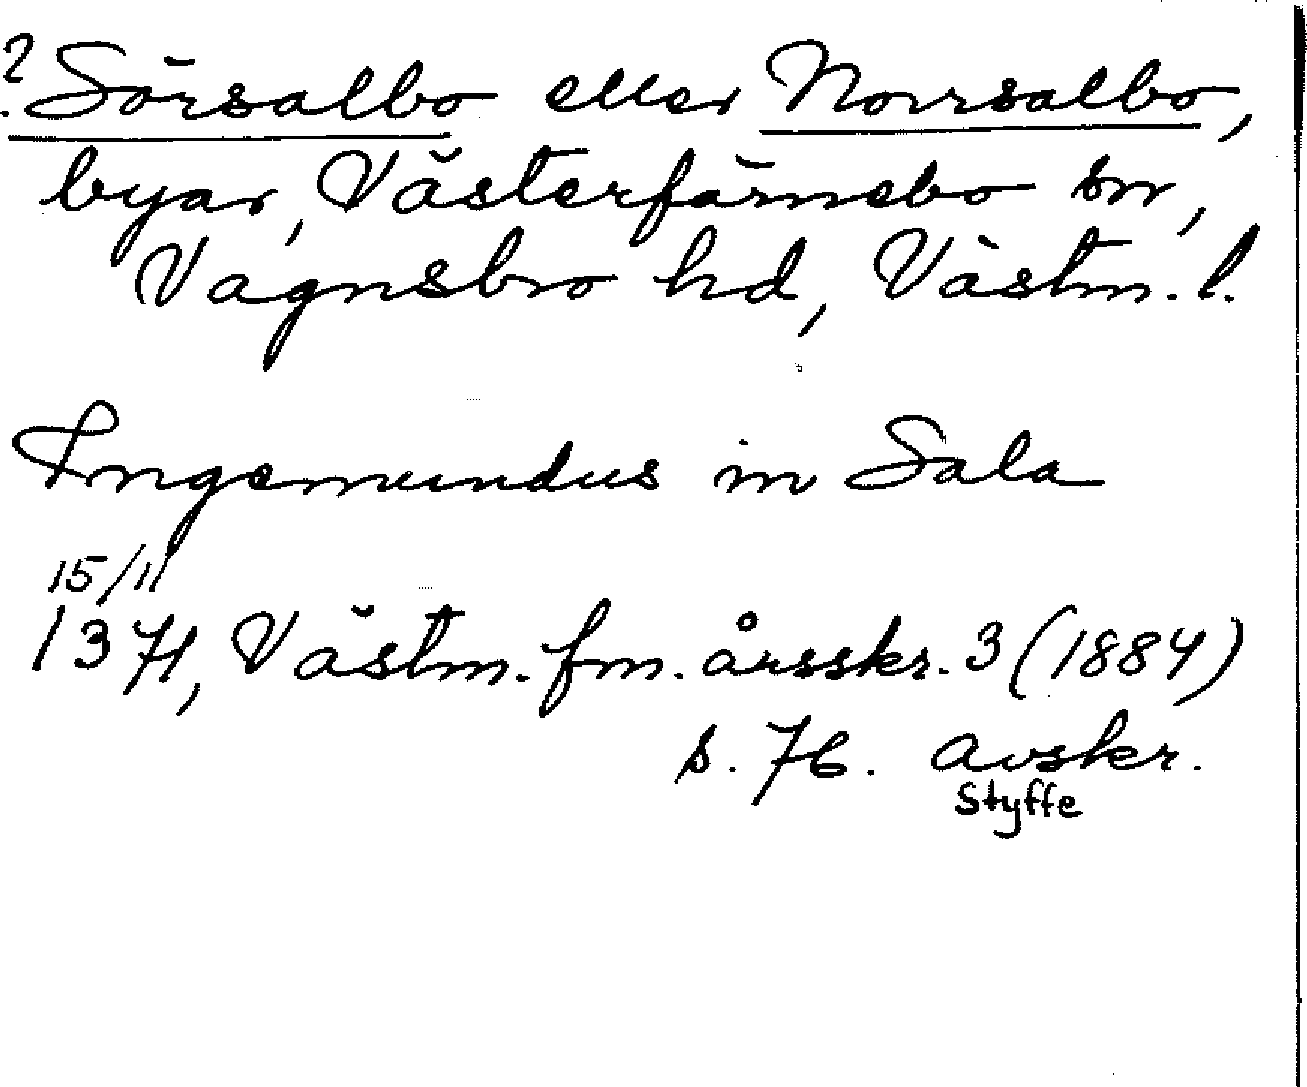 ? Sörsalbo eller Norrsalbo,
byar, Västerfärnebo sn,
Vagnsbro hd, Västm. l.
Ingemundus in Sala
15/11
1371, Västm. fm. årsskr. 3 (1884)
s. 76. Avskr.
Styffe